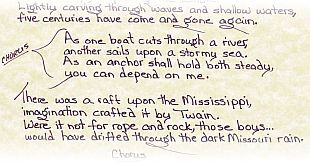 Lightly carving through waves and shallow waters,
five centuries have come and gone again.
CHORUS
As one boat cuts through a river,
another sails upon a stormy sea.
As an anchor shall hold both steady,
you can depend on me.
There was a raft upon the Mississippi,
imagination crafted it by Twain.
Were it not for rope and rock, those boys...
would have drifted through the dark Missouri rain.
Chorus